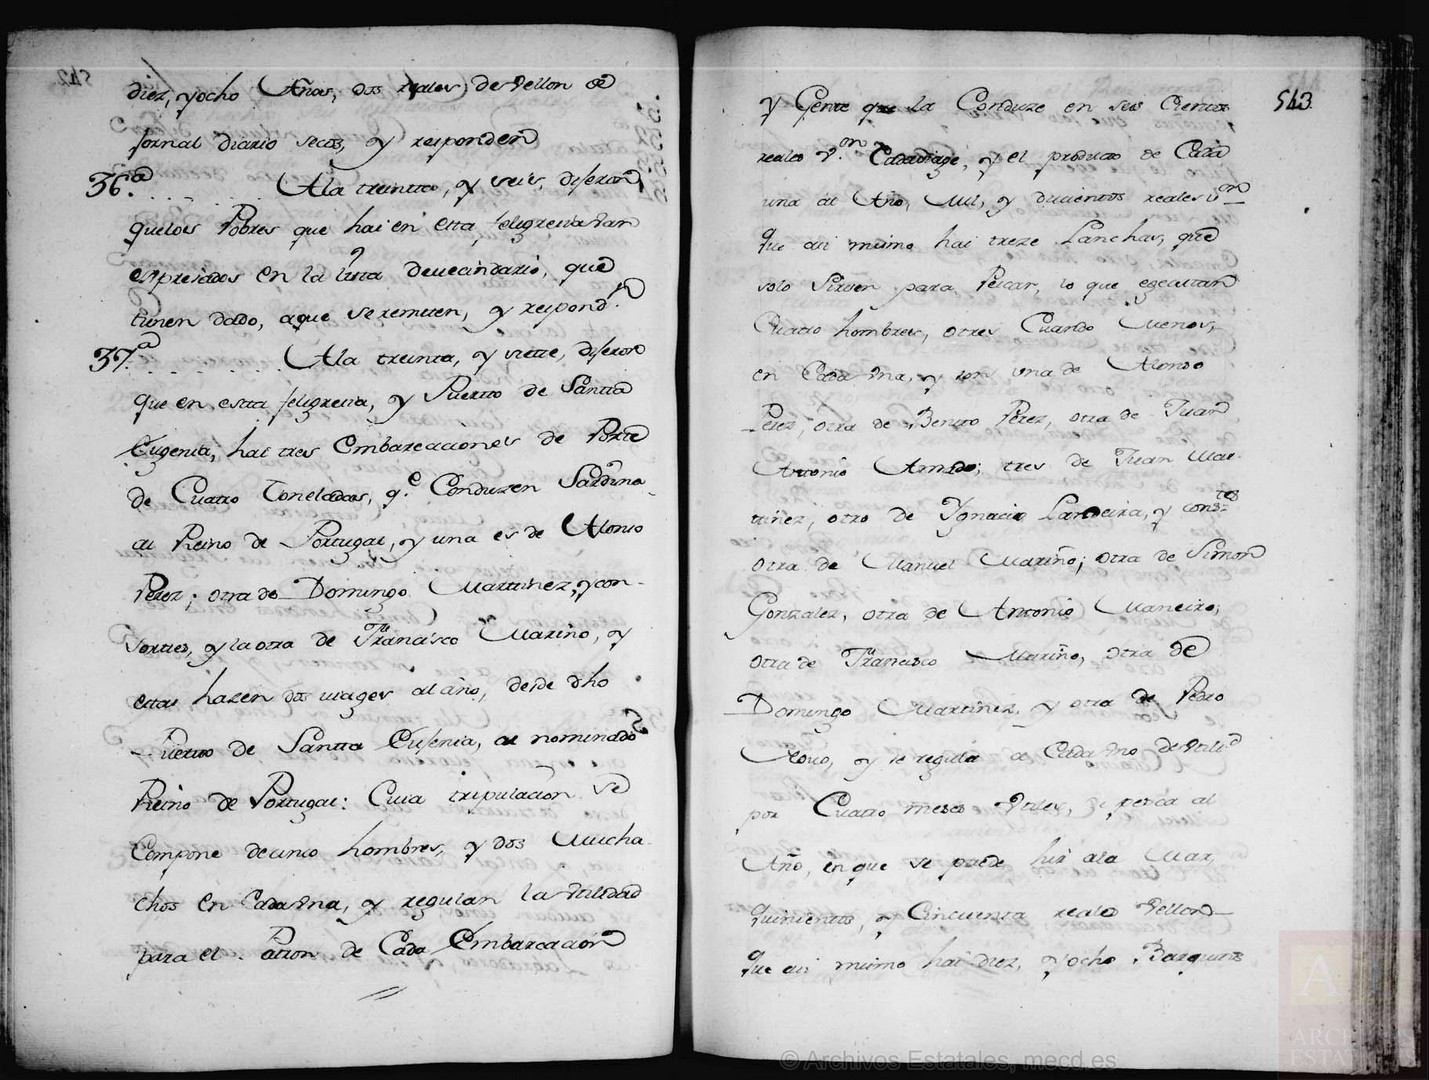 diez, y ocho Años, dos reales de Vellon de
Jornal diario secos, y responden
36.ª A la treintta, y seis, dijeron
que los Pobres que hai en esta feligresia van
expresados en la lista de vecindario, que
tienen dado, a que se remiten, y respond.n
37.ª A la treinta, y siette, dijeron
que en estta feligresia, y Puertto de Santta
Eugenia, hai tres Embarcaciones de Portte
de Cuatro Toneladas, q.e Conduzen Sardina
al Reino de Portugal, y una es de Alonso
Perez; otra de Domingo Martinez, y con-
sortes, y la otra de Francisco Mariño, y
estas hazen dos viages al año, desde dho
Puertto de Santta Eugenia, al nominado
Reino de Portugal: Cuia tripulacion se
Compone de cinco hombres, y dos Mucha
chos en Cada Vna, y regulan la Vtilidad
para el Patron de Cada Embarcación
543
y Gente que la Conduze en seis Cientos
reales v.on Cada viage, y el producto de Cada
una al Año, Mil, y ducientos reales v.on
Que asi mismo hai treze Lanchas, que
solo Sirven para Pescar, lo que egecuttan
Cuatro hombres, otres Cuando Menos,
en Cada Vna, y son, una de Alonso
Perez, otra de Benito Perez, otra de Juan
Antonio Amado; tres de Juan Mar-
tinez, otro de Ygnacio Lampeira, y cons.tes
Otra de Manuel Mariño; otra de Simon
Gonzalez, otra de Antonio Maneiro;
otra de Francisco Mariño, Otra de
Domingo Martinez, y otra de Pedro
y se regula a Cada Vno de Vtili.d
por Cuatro meses Vtiles, de pesca al
Año, en que se puede hir a la Mar,
Quinientos, y Cincuenta reales Vellon
Que asi mismo hai diez, y ocho Barquitos
© Archivos Estatales, mecd.es
A
ARCHIVOS
ESTATALES